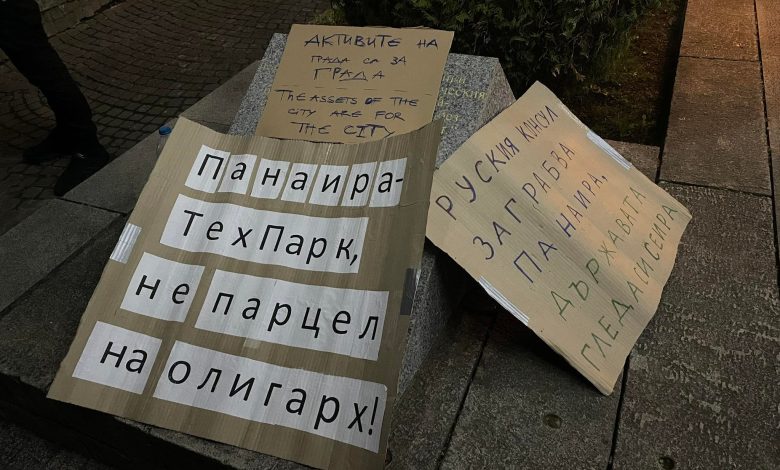 АКТИВИТЕ НА
ГРАДА СА ЗА
ГРАДА
THE ASSETS OF THE
CITY ARE FOR
THE CITY
Панаира-
ТехПарк,
не парцел
на олигарх!
РУСКИЯ КОНСУЛ
ЗАГРАБВА
ПАНАИРА,
ДЪРЖАВАТА
ГЛЕДА СИ СЕИРА